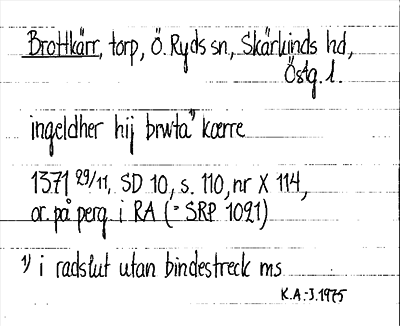 Brottkärr, torp, Ö. Ryds sn, Skärkinds hd,
Östg. l.
ingeldher hij brwta¹⁾ kærre
1371 29/11, SD 10, s. 110, nr X 114,
or. på perg. i RA (= SRP 1021)
¹⁾ i radslut utan bindestreck ms
K.A:-J. 1975